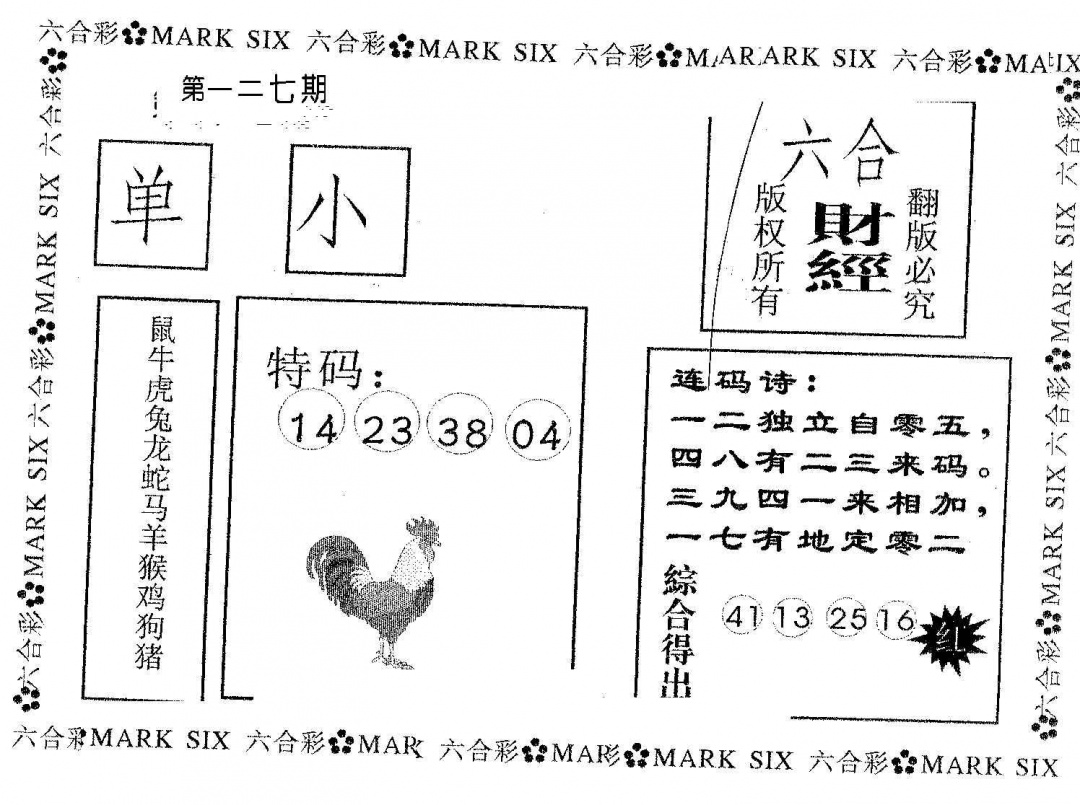 六合彩 MARK SIX 六合彩 MARK SIX 六合彩 MARK SIX 六合彩
第一二七期
单
小
六合
財經
版权所有
翻版必究
鼠牛虎兔龙蛇马羊猴鸡狗猪
特码：
14 23 38 04
连码诗：
一二独立自零五，
四八有二三来码。
三九四一来相加，
一七有地定零二
綜合得出
41 13 25 16
红
六合彩 MARK SIX 六合彩 MARK SIX 六合彩 MARK SIX
六合彩 MARK SIX 六合彩 MARK SIX 六合彩 MARK SIX 六合彩
MARK SIX 六合彩 MAR 六合彩 MAR MARK SIX 六合彩 MARK SIX